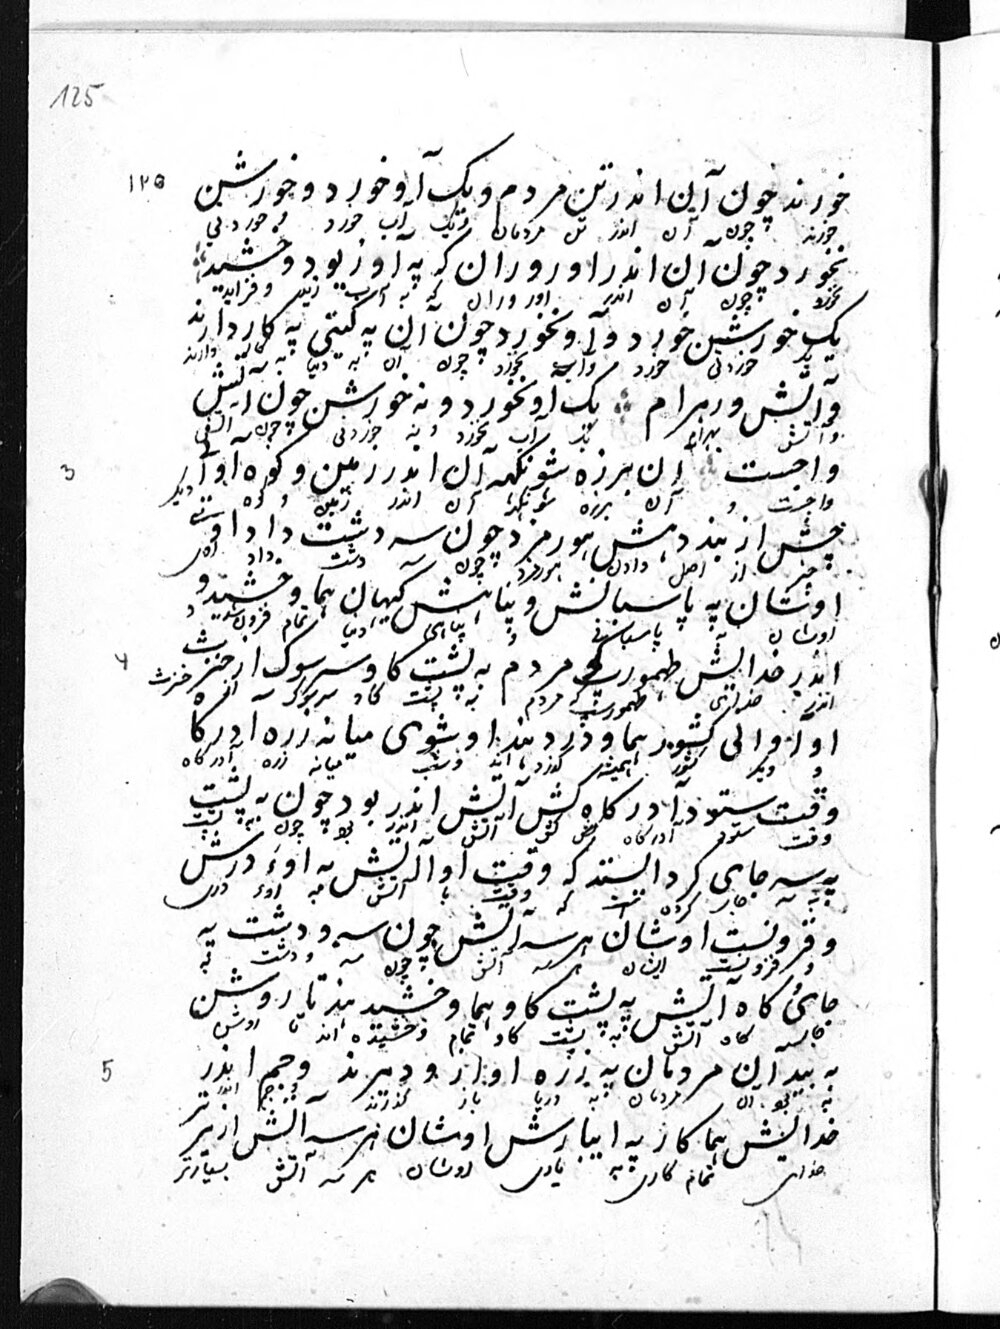 125
۱۲۵
خورند چون آن اندر تن مردم و یک آو خورد و خورشن
خورند چون آن اندر تن مردمان و یک آب خورد و خوردنی
نخورد چون آن اندر اوروران که په آو زیود وخشید
نخورد چون آن اندر اوروران که به آب زید و فزاید
یک خورشن خورد و آو نخورد چون آن په گیتی په کار دارند
یک خوردنی خورد و آب نخورد چون آن به دنیا به کار دارند
و آتش ورهرام یک آو نخورد و نه خورشن چون آتش
و آتش بهرام یک آب نخورد و نه خوردنی چون آتش
3
واجست آن برزه سونگهه آن اندر زمین و کوه آوآر
واجست و آن برزه سونگهه آن اندر زمین و کوه دیگر
چش از بند دهش هورمزد چون سه دشت داد
چیز از اصل دادن هورمزد چون سه دشت داد
اوشان په پاسبانش و پناهش گیهان هما وخشید و
اوشان به پاسبانی و پناهی دنیا تمام فزون شدند و
4
اندر خدایش طهمورپ مردم په پشت گاو سرسوک از خنرث
اندر خدایی طهمورس که مردم به پشت گاو سرسوک از خنرث
او آوانی کشور هما وذردند اوشوی میانه زره آدر گاه
و دیگر کشور همیشه گذرده اند و شب میانه زره آدرگاه
وقت ستود آدر گاه کش آتش اندر بود چون په پشت
وقت ستود آدرگاه کش آتش اندر بود چون به پشت
په سه جای کرد ایستد که وقت او آتش په اوء درش
به سه جای کرده است که وقت با آتش به اوء دری
و فرونست اوشان هر سه آتش چون سه و دشت په
و فزونیست ایشان هر سه آتش چون سه و دشت به
جای گاه آتش په پشت گاو هما وخشید هند تا روشن
جای گاه آتش به پشت گاو تمام وخشیده اند تا روشن
5
په بید آن مردمان په زره اواز ودهرند و جم اندر
به بود آن مردمان به دریا باز گذرند و جم اندر
خدایش هما کار په ایبارش اوشان هر سه آتش از تر
خدایی تمام کاری به یاری اوشان هر سه آتش بسیارتر